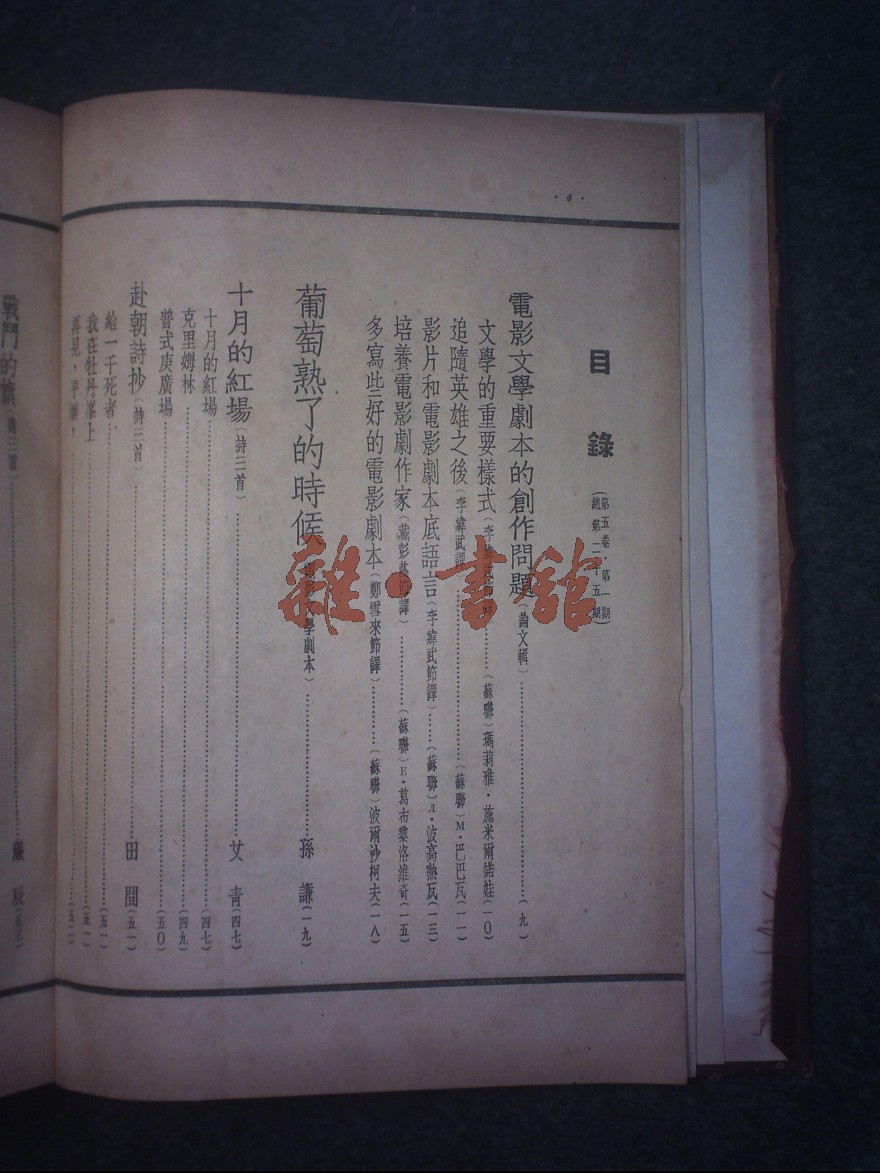 目錄
(第五卷・第一期
總第二十五期)
電影文學劇本的創作問題(論文輯)……(九)
文學的重要樣式(李……(蘇聯)瑪莉雅・施米爾諾娃(一〇)
追隨英雄之後(李緯武譯)……(蘇聯)M・巴巴瓦(一一)
影片和電影劇本底語言(李緯武節譯)……(蘇聯)Л・波高熱瓦(一三)
培養電影劇作家(戴彭……譯)……(蘇聯)E・葛布黎洛維奇(一五)
多寫些好的電影劇本(鄭雪來節譯)……(蘇聯)波爾沙柯夫(一八)
葡萄熟了的時候(電影文學劇本)……孫謙(一九)
十月的紅場(詩三首)……艾青(四七)
十月的紅場……(四七)
克里姆林……(四九)
普式庚廣場……(五〇)
赴朝詩抄(詩三首)……田間(五一)
給一千死者……(五一)
我在牡丹峯上……(五一)
再見,平壤……(五二)
戰鬥的旗(詩二首)……嚴辰(五三)
雜・書舘